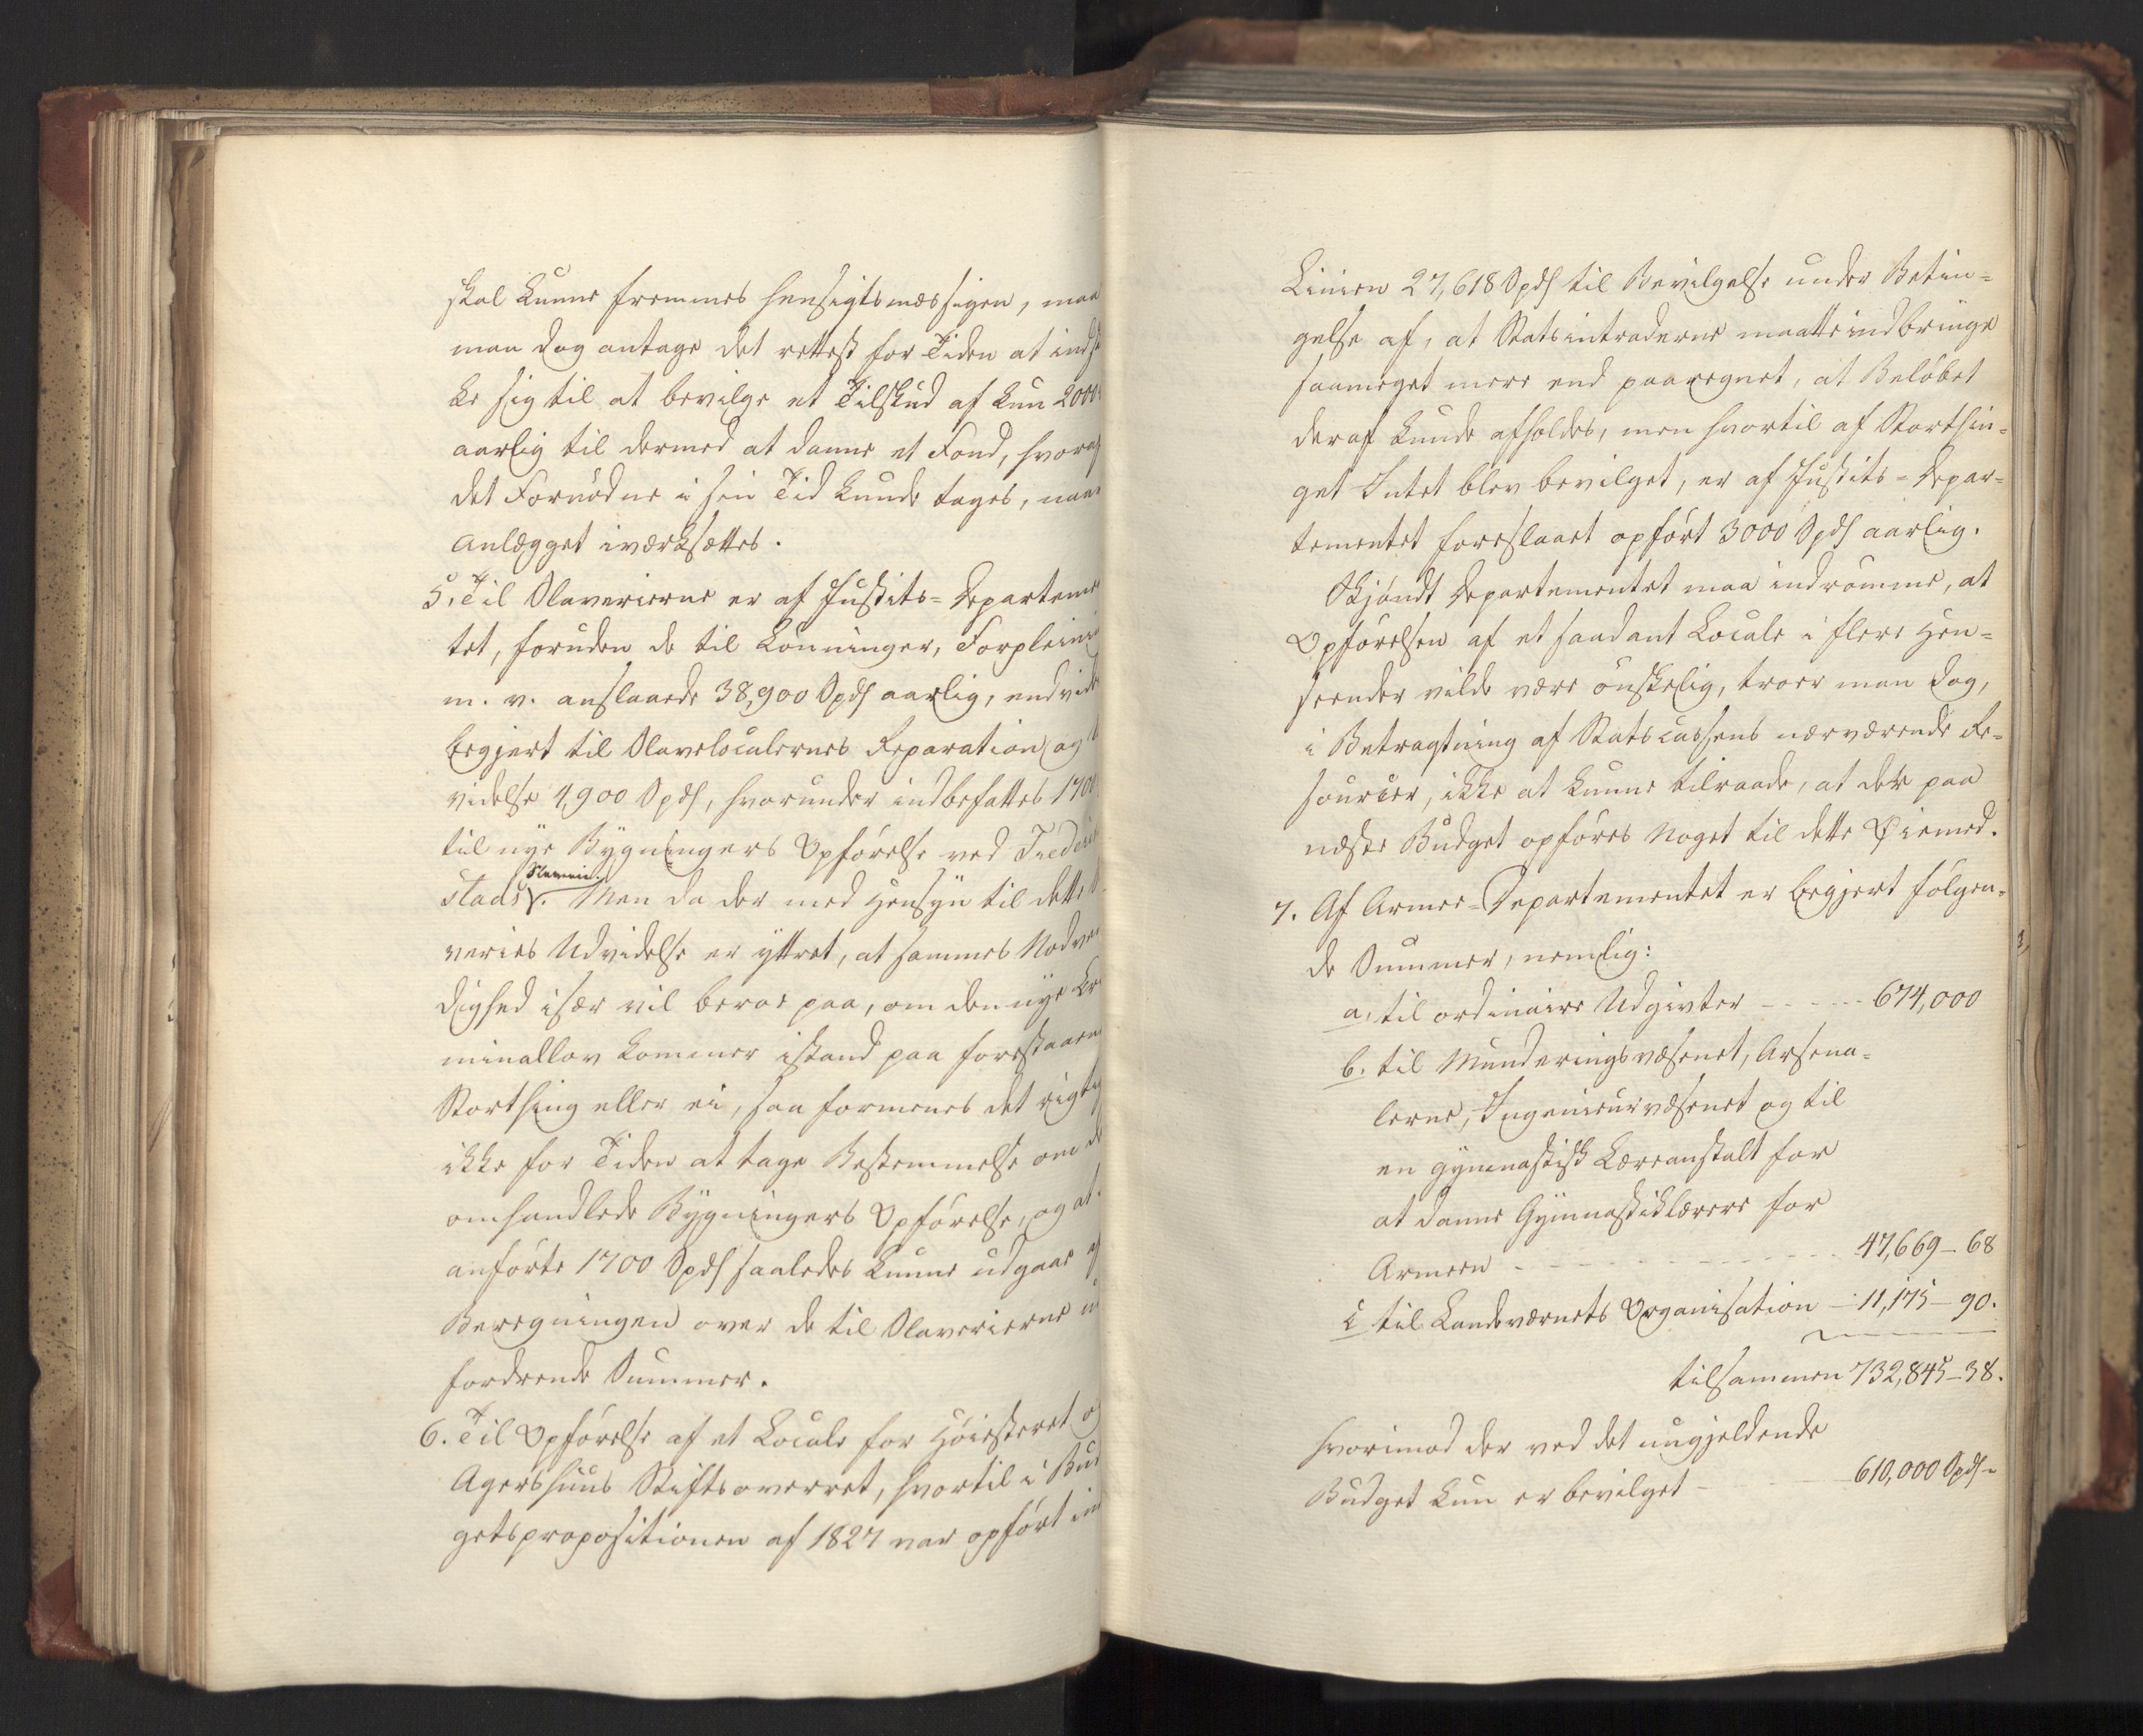 skal kunne fremmes hensigtsmæssigen, maa
man dog antage det rettest for Tiden at ind
ke sig til at bevilge et Tilskud af kun 2000
aarlig til dermed at danne et Fond, hvoraf
det Fornødne i sin Tid kunde tages, naar
Anlægget iværksættes.
5. Til Slaverierne er af Justits-Departeme
tet, foruden de til Lønninger, Forpleining
m. v. anslaaede 38,900 Spd aarlig, endvide
begjert til Slavelocalernes Reparation og
videlse 4,900 Spd, hvorunder indbefattes 1700
til nye Bygningers Opførelse ved Frederik
Slaverie.
stads. Men da der med Hensyn til dette
veries Udvidelse er yttret, at sammes Nødven
dighed især vil beroe paa, om den nye Cri
minallov kommer istand paa forestaaen
Storthing eller ei, saa formenes det rigtig
ikke for Tiden at tage Bestemmelse om de
omhandlede Bygningers Opførelse, og at
anførte 1700 Spd saaledes kunne udgaae af
Beregningen over de til Slaverierne
fordrende Summer.
6. Til Opførelse af et Locale for Høiesteret og
Agershuus Stiftsoverret, hvortil i Bud
getspropositionen af 1827 var opført in
Linien 27,618 Spd til Bevilgelse under Betin-
gelse af, at Statsintraderne maatte indbringe
saameget mere end paaregnet, at Beløbet
deraf kunde afholdes, men hvortil af Storthin-
get Intet blev bevilget, er af Justits-Depar-
tementet foreslaaet opført 3000 Spd aarlig.
Skjøndt Departementet maa indrømme, at
Opførelsen af et saadant Locale i flere Hen-
seender vilde være ønskelig, troer man dog,
i Betragtning af Statscassens nærværende Re-
sourcer, ikke at kunne tilraade, at der paa
næste Budget opføres Noget til dette Øiemed.
7. Af Armee-Departementet er begjert følgen-
de Summer, nemlig:
a, til ordinaire Udgivter - - - - - 674,000
b. til Munderingsvæsenet, Arsena-
lerne, Ingenieurvæsenet og til
en gymnastisk Læreanstalt for
at danne Gymnastiklærere for
Armeen - - - - - - - - 47,669 - 68
c til Landeværnets Organisation - 11,175 - 90.
tilsammen 732,845 - 38.
hvorimod der ved det nugjeldende
Budget kun er bevilget - 610,000 Spd